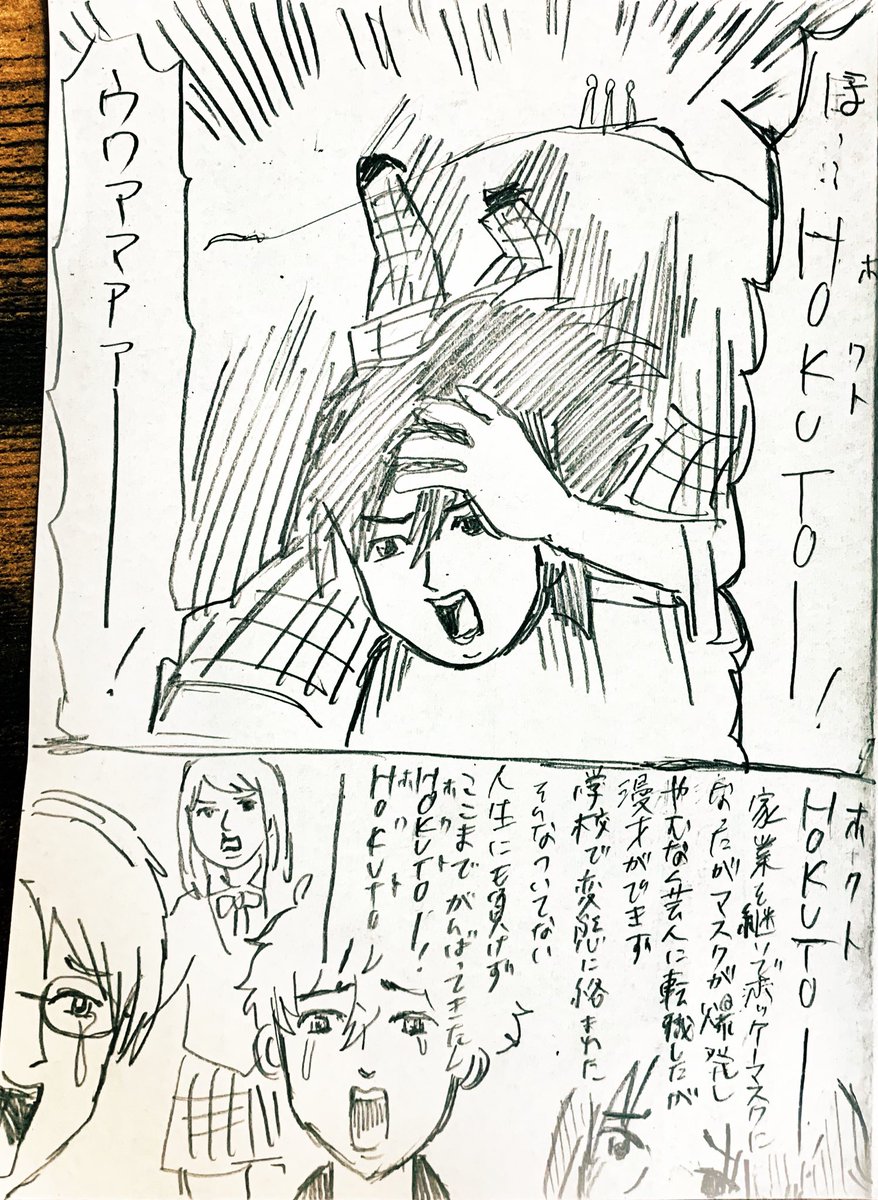 ほ…HOKUTOー!
ホクト
ウワアアアアー!
HOKUTOー
ホクト
家業を継いでホッケーマスクに
なったがマスクが爆発し
やむなく芸人に転職したが
漫才ができず
学校で変態に絡まれた
そんなついてない
人生にも負けず
ここまでがんばってきたん
ホクト
HOKUTO!!
ホクト
HOKUTO!